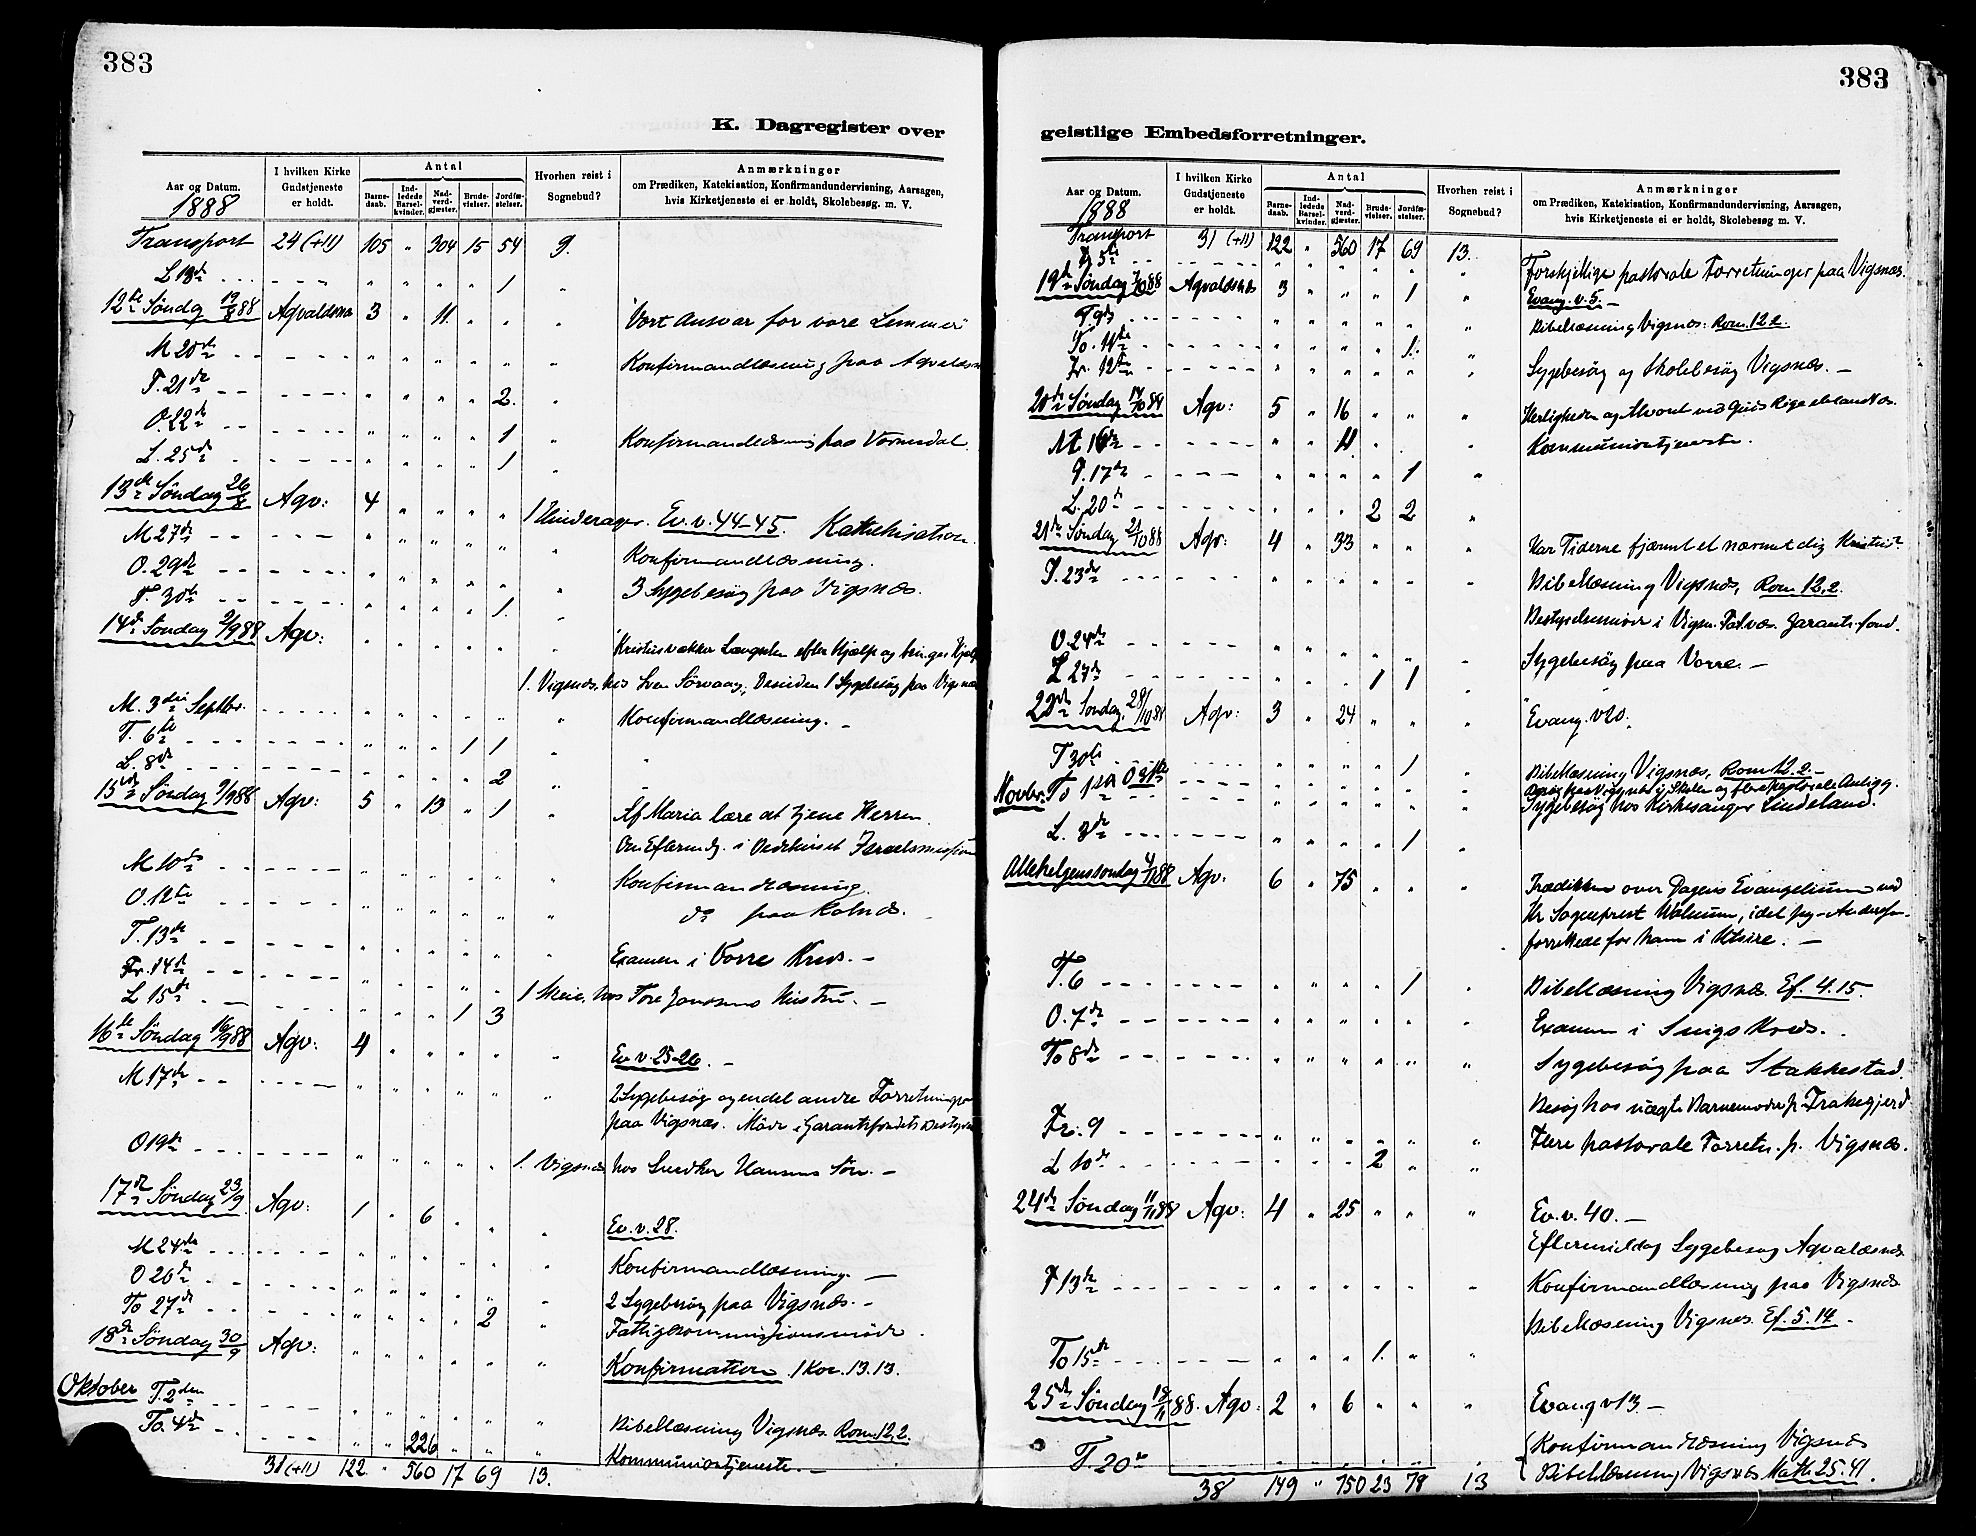 383
K. Dagregister over
Aar og Datum.
1888
I hvilken Kirke Gudstjeneste er holdt.
Antal
Barnedaab. Indledede Barselkvinder. Nadverdgjæster. Brudevielser. Jordfæstelser.
Hvorhen reist i Sognebud?
Anmærkninger
om Prædiken, Katekisation, Konfirmandundervisning, Aarsagen,
hvis Kirketjeneste ei er holdt, Skolebesøg. m. V.
Transport 24 (+11) 105 " 304 15 54 9.
L 18de 1
12te Søndag 19/8 88 Agvaldsnæs 3 " 11 Vort Ansvar for vore Lemmer
M 20de Konfirmandlæsning paa Agvaldsn
T. 21de 2.
O. 22de 1 Konfirmandlæsning paa Vormedal
L. 25de 1
13de Søndag 26/8 Agv: 4 1 Hinderager. Ev. v. 44-45. Katekisation.
M 27de Konfirmandlæsning.
O. 29de 3 Sygebesøg paa Vigsnæs.
T. 30te 1.
14de Søndag 2/9 88 Agv: Kristus vækker Længselen efter Hjælp og bringer Hjælp
1. Vigsnæs, hos Sørvaag, Desuden 1 Sygebesøg paa Vigsnæs
M. 3die Septbr. Konfirmandlæsning. -
T. 6te 1 1
L. 8de 2
15de Søndag 9/9 88 Agv: 5 " 13 " 1 Af Maria lære at tjene Herren.
Om Efterm. i Bedehuset Israelsmission
M 10de Konfirmandlæsning.
O. 12te do paa Kolnæs.
T. 13de
Fr. 14de Examen i Vorre Kreds. -
L 15de 1 3 1 hos Tore Hustru. -
16te Søndag 16/9 88 Agv: 4 Ev. v. 25-26. -
M 17de 2 Sygebesøg og endel andre Forretninger
paa Vigsnæs. Møde i Garantifondets Bestyrelse
O 19de 1. Vigsnæs, hos Hansens Søn. -
17de Søndag 23/9 Agv: 1 " 6 Ev. v. 28.
M 24de Konfirmandlæsning. -
O 26de 2 Sygebesøg paa Vigsnæs. -
To 27de 2 Fattigkommissionsmøde.
18de Søndag 30/9 Agv: Konfirmation 1 Kor. 13.13.
Oktober T. 2den Bibellæsning Vigsnæs Rom. 12,2.
To. 4de 226 Kommuniontjeneste. -
31 (+11) 122 " 560 17 69 13.
383
geistlige Embedsforretninger.
Aar og Datum.
1888
I hvilken Kirke Gudstjeneste er holdt.
Antal
Barnedaab. Indledede Barselkvinder. Nadverdgjæster. Brudevielser. Jordfæstelser.
Hvorhen reist i Sognebud?
Anmærkninger
om Prædiken, Katekisation, Konfirmandundervisning, Aarsagen,
hvis Kirketjeneste ei er holdt, Skolebesøg m. V.
Transport 31 (+11) 122 " 560 17 69 13.
Fr 5te Forskjellige pastorale Forretninger paa Vigsnæs.
19de Søndag 7/10 88 Agvaldsnæs 3 " " " 1 Evang. v. 5. -
T 9de Bibellæsning Vigsnæs: Rom. 12.2.
To. 11te 1.
Fr. 12te Sygebesøg og Skolebesøg Vigsnæs. -
20de Søndag 14/10 88 Agv: 5 " 16 Herligheden og Alvoret ved Guds Rige iblandt os.
M 15de 11 Kommuniontjeneste.
T. 17de 1
L. 20de 2 2
21de Søndag 21/10 88 Agv: 4 " 33 Har Tiderne fjærnet el nærmet dig Kristus?
T. 23de Bibellæsning Vigsnæs, Rom 12,2.
Bestyrelsesmøde i Vigsn. Garantifond.
O. 24de Sygebesøg paa Vorre. -
L 27de 1 1
22de Søndag 28/10 88 Agv: 3 " 24 Evang. v 20.
T 30te 1 Bibellæsning Vigsnæs, Rom 12.2. -
O 31te Vigsnæs i Skolen og flere Pastorale Anligg.
Novbr. To 1ste Sygebesøg hos Kirkesanger Lindeland.
L. 3de 1
Allehelgenssøndag 4/11 88 Agv. 6 " 75 Prædiken over Dagens Evangelium ved
Hr Sogneprest idet jeg
forrettede for ham i Utsire. -
T. 6 1 Bibellæsning Vigsnæs Ef. 4.15.
O. 7de Examen i Kreds. .
To 8de Sygebesøg paa Stakkestad.
Besøg hos uægte Barnemoder p.
Fr. 9 Flere pastorale Forretn. p. Vigsnæs.
L 10de 2
24de Søndag 11/11 88 Agv: 4 " 25 Ev. v. 40. -
Eftermiddag Sygebesøg Agvaldsnæs
T 13de Konfirmandlæsning paa Vigsnæs
Bibellæsning Vigsnæs Ef. 5.14.
To 15de 1.
25de Søndag 18/11 88. Agv: 2 " 6 Evang v 13. -
Konfirmandlæsning Vigsnæs
T. 20de Bibellæsning Vigsnæs Math 25.41.
38 149 " 750 23 78 13